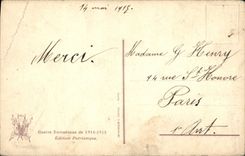 14 mai 1915.
Merci.
Madame G Henry
44 rue St Honore
Paris
1er Arrt.
Guerre Européenne de 1914-1915
Édition Patriotique